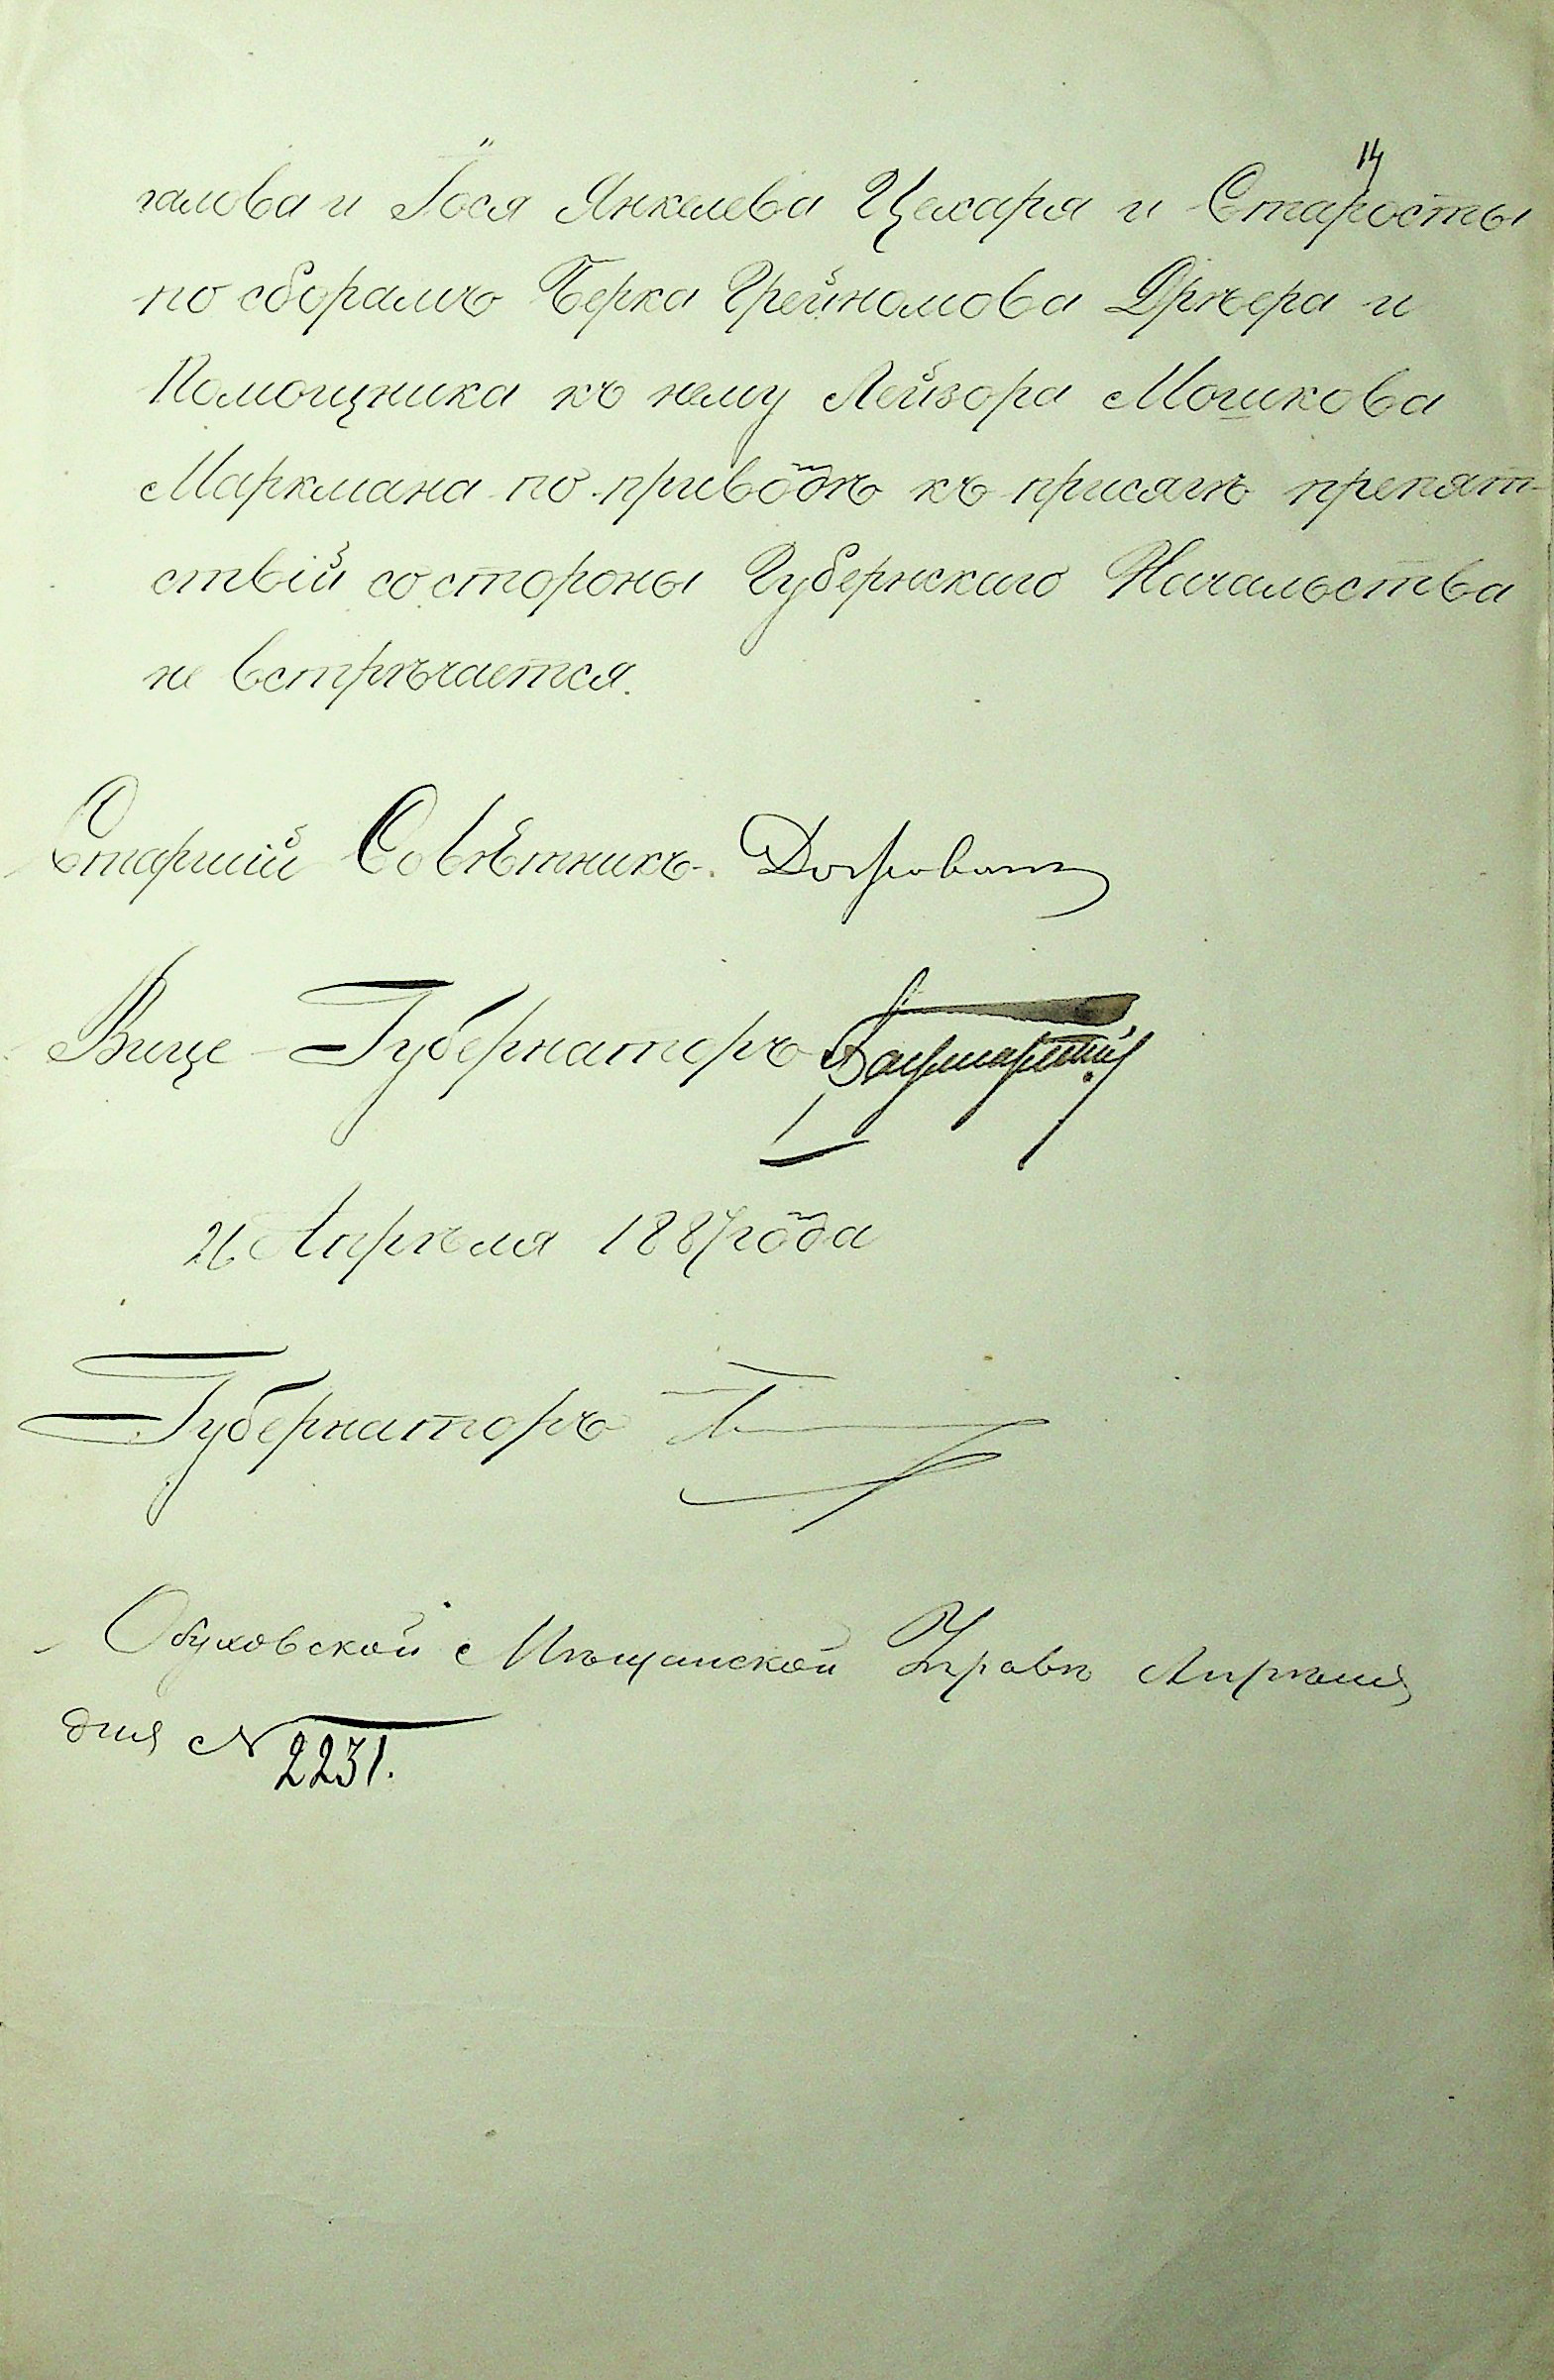 14
галова и Іося Янкелева Цехаря и Старосты
по сборамъ Берка Грейномова Дрѣера и
Помощника къ нему Лейзора Мошкова
Маркмана по приводѣ къ присягѣ препят-
ствій со стороны Губернскаго Начальства
не встрѣчается.
Старшій Совѣтникъ
Вице-Губернаторъ
26 Апрѣля 1887 года
Губернаторъ
Обуховской Мѣщанской Управѣ Апрѣля
дня № 2231.